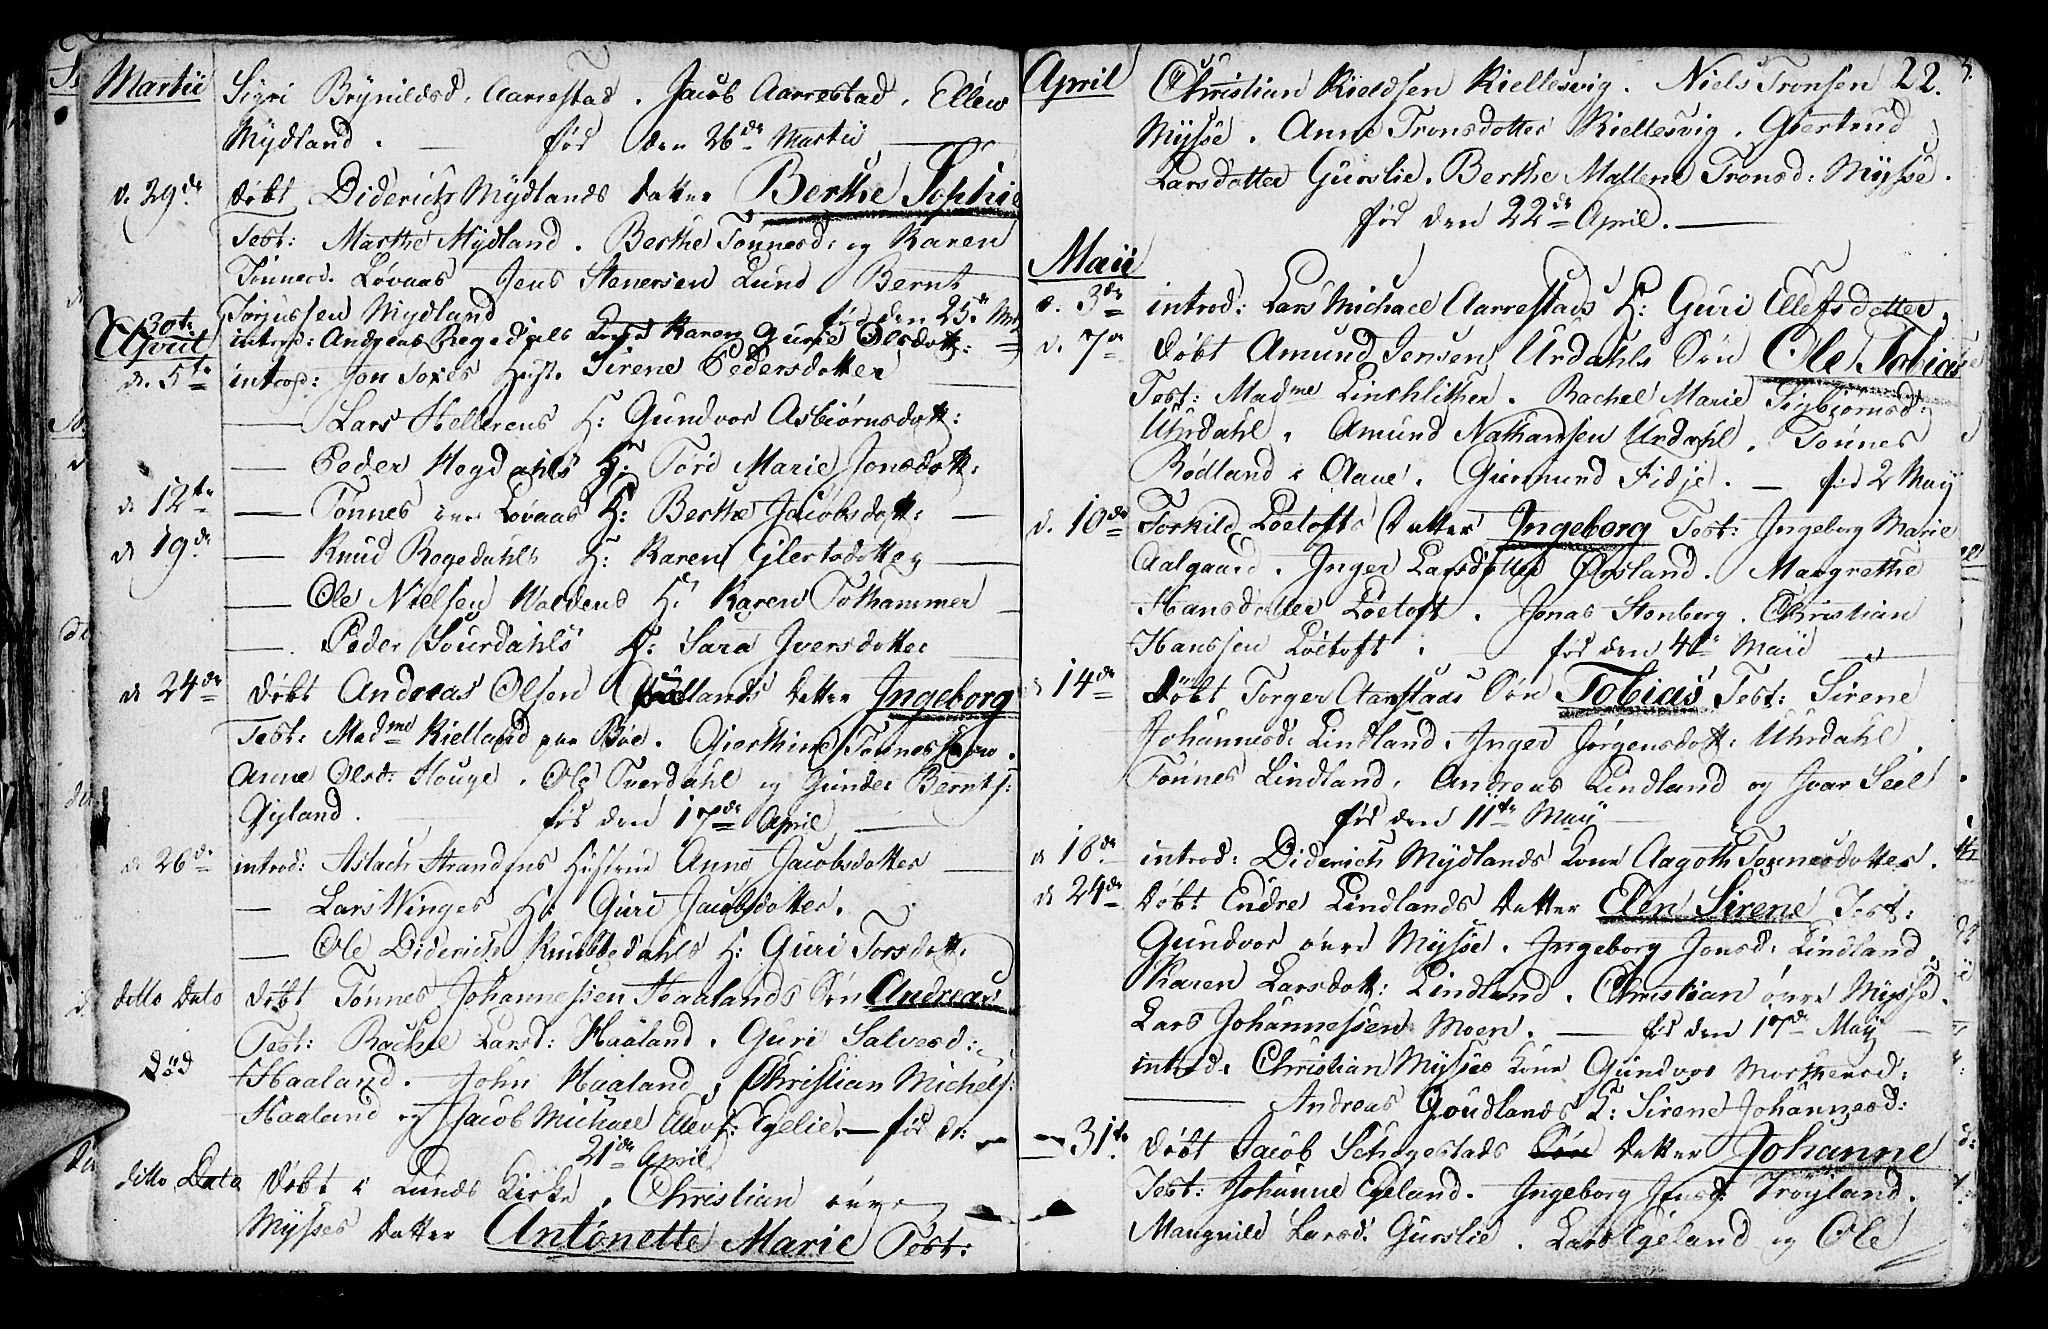 Martii
Sigri Brynildsd. Aarrestad. Jacob Aarrestad. Ellew
Mydland. — fød den 26de Martii
d. 29de døbt Diderich Mydlands datter Berthe Sophie
Test: Marthe Mydland. Berthe Tønnesd: og Karen
Tønnesd. Løvaas, Jens Stenersen Lund Bernt
Torjussen Mydland fød den 25de
30te introd: Andreas Regedahls Karen Gurie Olsdott:
April
d. 5te introd: Jon Toxes Hust. Sirene Pedersdotter
— Lars Hellerens H: Gundvor Asbiørnsdott:
— Peder Hegdahls H: Tøri Marie Jonsdott:
d 12te — Tønnes Løvaas H: Berthe Jacobsdott: —
d 19de — Knud Regedahls H: Karen Eilertsdotter —
— Ole Nielsen Waldens H: Karen Tothammer
— Peder Sourdahls H: Sara Iversdotter
d 24de døbt Andreas Olsen datter Ingeborg
Test: Madme Kielland paa Bøe. Gierthine Tønnes
Anne Olsd: Houge. Ole Tverdahl og Gunder Bernts:
Gyland. — fød den 17de April —
d 26de introd: Aslach Strandens Hustrue Anne Jacobsdotter —
— Lars Winges H: Guri Jacobsdotter.
— Ole Diderich H: Guri Torsdott.
ditto Dato døbt Tønnes Johannessen Haalands Søn Andreas
Test: Rachel Larsd: Haaland. Guri Salvesd:
Død Haaland. John Haaland, Christian Michels:
Haaland og Jacob Michael Ellefs: Egelie. — fød d:
21de April
ditto Dato Døbt i Lunds Kirke, Christian øvre
Mysses datter Antonette Marie Test:
April
Christian Kieldsen Kiellesvig. Niels Tronsen 22.
Mysse. Anne Tronsdotter Kiellesvig. Giertrud
Larsdotter Gurslie. Berthe Mallene Tronsd: Mysse.
fød den 22de April. —
Maii
d. 3de introd: Lars Michael Aarrestads H: Guri Ellefsdotter
d. 7de døbt Amund Jensen Urdahls Søn Ole Tobias
Test: Madme Rachel Marie Sigbiørnsd:
Uhrdahl. Amund Nathansen Urdahl. Tønnes
Rødland i Aaue. Giermund Fidje. — fød 2 May
d. 10de Torkild Løetofts datter Ingeborg Test: Ingeborg Marie
Aalgaard. Inger Larsdotter Ørsland. Margrethe
Hansdotter Løetoft. Jonas Stenberg. Christian
Hanssen Løetoft. fød den 4de Maii
14de døbt Torger Aarstads Søn Tobias Test: Sirene
Johannesd: Lindland. Inger Jørgensdott: Uhrdahl.
Tønnes Lindland. Andreas Lindland og Ivar Seel
fød den 11te May
d 18de introd: Diderich Mydlands Kone Aagoth Tønnesdotter.
d 24de døbt Endre Lindlands datter Elen Sirene Test:
Gundvor øvre Mysse. Ingeborg Jonsd: Lindland
Karen Larsdott: Lindland. Christian øvre Mysse.
Lars Johannessen Moen. — fød den 17de May —
introd. Christian Mysses Kone Gundvor
— Andreas Goudlands H: Sirene Johannesd:
31te døbt Jacob Schogestads Søn datter Johanne
Test: Johanne Egeland. Ingeborg Jensd: Trøyland.
Mangnild Larsd: Gurslie. Lars Egeland og Ole